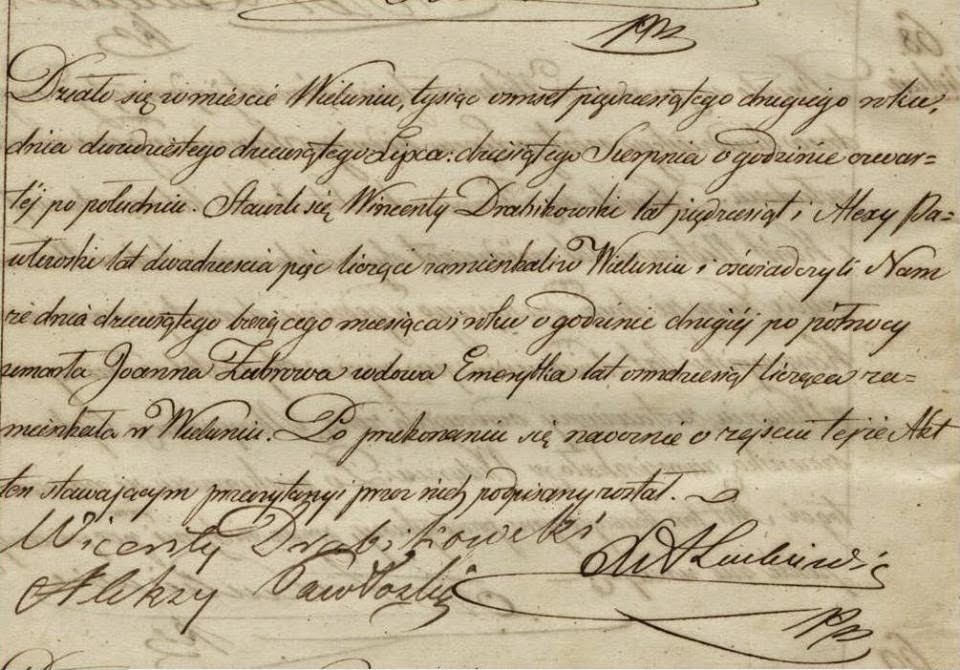 Działo się w mieście Wieluniu, tysiąc osmset pięćdziesiątego drugiego roku,
dnia dwudziestego dziewiątego Lipca: dziesiątego Sierpnia o godzinie czwar=
téj po południu. Stawili się Wincenty Drabikowski lat pięćdziesiąt i Alexy Pa=
włowski lat dwadzieścia pięć liczący zamieszkali w Wieluniu i oświadczyli Nam
że dnia dziewiątego bieżącego miesiąca i roku o godzinie drugiéj po północy
umarła Joanna Zubrowa wdowa Emerytka lat osmdziesiąt licząca za=
mieszkała w Wieluniu. Po przekonaniu się naocznie o zejściu tejże Akt
ten stawającym przeczytany i przez nich podpisany został.
Wicenty Drabikowski
Alikzy